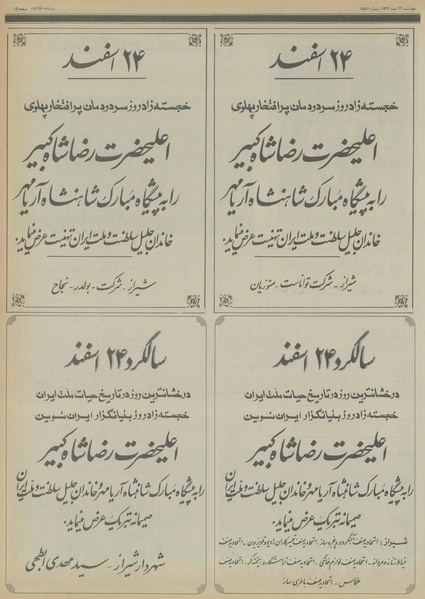 ۲۴ اسفند
خجسته زادروز سر دودمان پرافتخار پهلوی
اعلیحضرت رضاشاه کبیر
را به پیشگاه مبارک شاهنشاه آریامهر
خاندان جلیل سلطنت و ملت ایران تهنیت عرض مینماید.
شیراز - شرکت توانا است - منوریان
۲۴ اسفند
خجسته زادروز سر دودمان پرافتخار پهلوی
اعلیحضرت رضاشاه کبیر
را به پیشگاه مبارک شاهنشاه آریامهر
خاندان جلیل سلطنت و ملت ایران تهنیت عرض مینماید.
شیراز - شرکت - بولدر - نجاح
سالگرد ۲۴ اسفند
درخشانترین روز در تاریخ حیات ملت ایران
خجسته زادروز بنیانگزار ایران نوین
اعلیحضرت رضاشاه کبیر
را به پیشگاه مبارک شاهنشاه آریامهر و خاندان جلیل سلطنت و ملت ایران
صمیمانه تبریک عرض مینماید.
شیراز : اتحادیه صنف
اتحادیه صنف لوازم خانگی - اتحادیه صنف
عکاس - اتحادیه صنف باطری ساز
سالگرد ۲۴ اسفند
درخشانترین روز در تاریخ حیات ملت ایران
خجسته زادروز بنیانگزار ایران نوین
اعلیحضرت رضاشاه کبیر
را به پیشگاه مبارک شاهنشاه آریامهر و خاندان جلیل سلطنت و ملت ایران
صمیمانه تبریک عرض مینماید.
شهردار شیراز - سید مهدی ابطحی